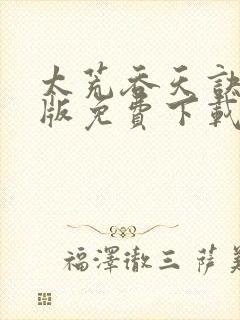 太荒吞天訣
版免費下載
福澤徹三 薩美